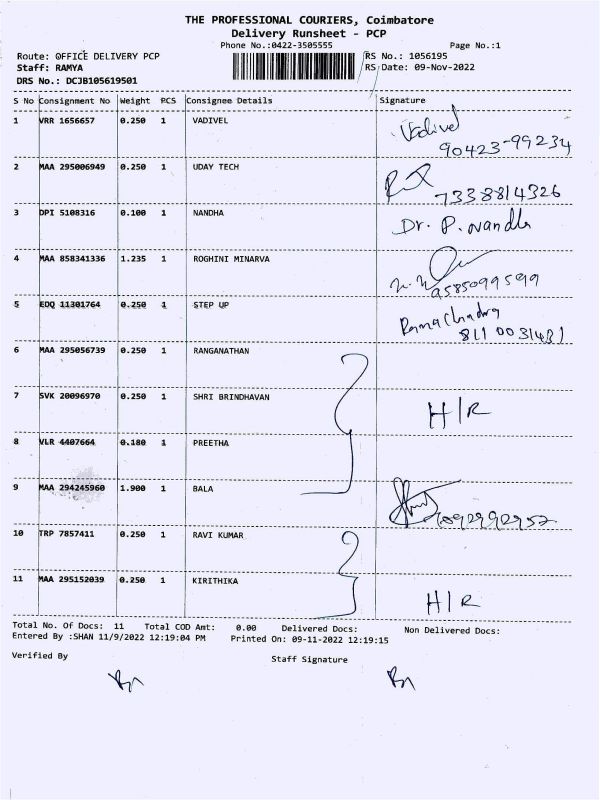 THE PROFESSIONAL COURIERS, Coimbatore
Delivery Runsheet - PCP
Phone No.:0422-3505555 Page No.:1
Route: OFFICE DELIVERY PCP RS No.: 1056195
Staff: RAMYA RS Date: 09-Nov-2022
DRS No.: DCJB105619501
S No Consignment No Weight PCS Consignee Details Signature
1 VRR 1656657 0.250 1 VADIVEL Vadivel
90423-99234
2 MAA 295006949 0.250 1 UDAY TECH
7338814326
3 DPI 5108316 0.100 1 NANDHA Dr. P. Nandha
4 MAA 858341336 1.235 1 ROGHINI MINARVA
9585099599
5 EDQ 11301764 0.250 1 STEP UP Ramachandra
8110031481
6 MAA 295056739 0.250 1 RANGANATHAN
7 SVK 20096970 0.250 1 SHRI BRINDHAVAN H/R
8 VLR 4407664 0.180 1 PREETHA
9 MAA 294245960 1.900 1 BALA
10 TRP 7857411 0.250 1 RAVI KUMAR
11 MAA 295152039 0.250 1 KIRITHIKA H/R
Total No. Of Docs: 11 Total COD Amt: 0.00 Delivered Docs: Non Delivered Docs:
Entered By :SHAN 11/9/2022 12:19:04 PM Printed On: 09-11-2022 12:19:15
Verified By Staff Signature